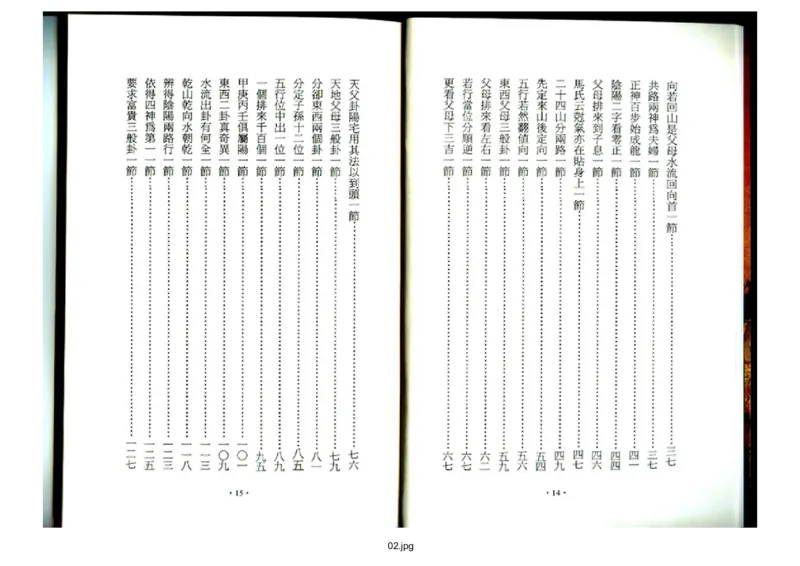 向若回山是父母水流回向首一節 三七
共路兩神為夫婦一節 三七
正神百步始成龍一節 四一
陰陽二字看零正一節 四四
父母排來到子息一節 四六
馬氏云尅氣亦在貼身上一節 四七
二十四山分兩路一節 四九
先定來山後定向一節 五四
五行若然翻值向一節 五六
東西父母三般卦一節 五九
父母排來看左右一節 六二
若行當位分順逆一節 六七
更看父母下三吉一節 六七
·14·
天父卦陽宅用其法以到頭一節 七六
天地父母三般卦一節 七九
分卻東西兩個卦一節 八一
分定子孫十二位一節 八五
五行位中出一位一節 八九
一個排來千百個一節 九五
甲庚丙壬俱屬陽一節 一〇一
東西二卦真奇異一節 一〇九
水流出卦有何全一節 一一三
乾山乾向水朝乾一節 一一八
辨得陰陽兩路行一節 一二三
依得四神為第一一節 一二五
要求富貴三般卦一節 一二七
·15·
02.jpg